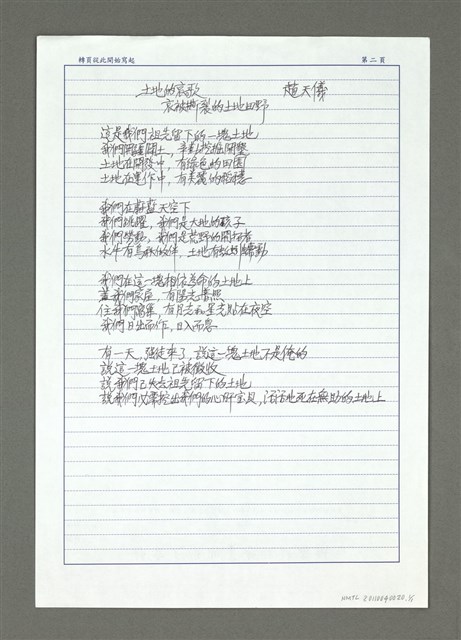 轉頁從此開始寫起
第二頁
土地的哀歌 趙天儀
哀被撕裂的土地田野
這是我們祖先留下的一塊土地
我們開疆闢土，辛勤挖掘開墾
土地在開發中，有綠色的田園
土地在運作中，有美麗的稻穗
我們在蔚藍天空下
我們跳躍，我們是大地的孩子
我們勞動，我們是荒野的開拓者
水牛有烏秋做伴，土地有蚯蚓蠕動
我們在這一塊相依為命的土地上
蓋我們家屋，有陽光普照
住我們窩巢，有月光和星光貼在夜空
我們日出而作，日入而息
有一天，強徒來了，說這一塊土地不是俺的
說這一塊土地已被徵收
說我們已失去祖先留下的土地
說我們必需挖出我們的心肝寶貝，活活地死在無助的土地上
NMTL 20110040020, 1/1